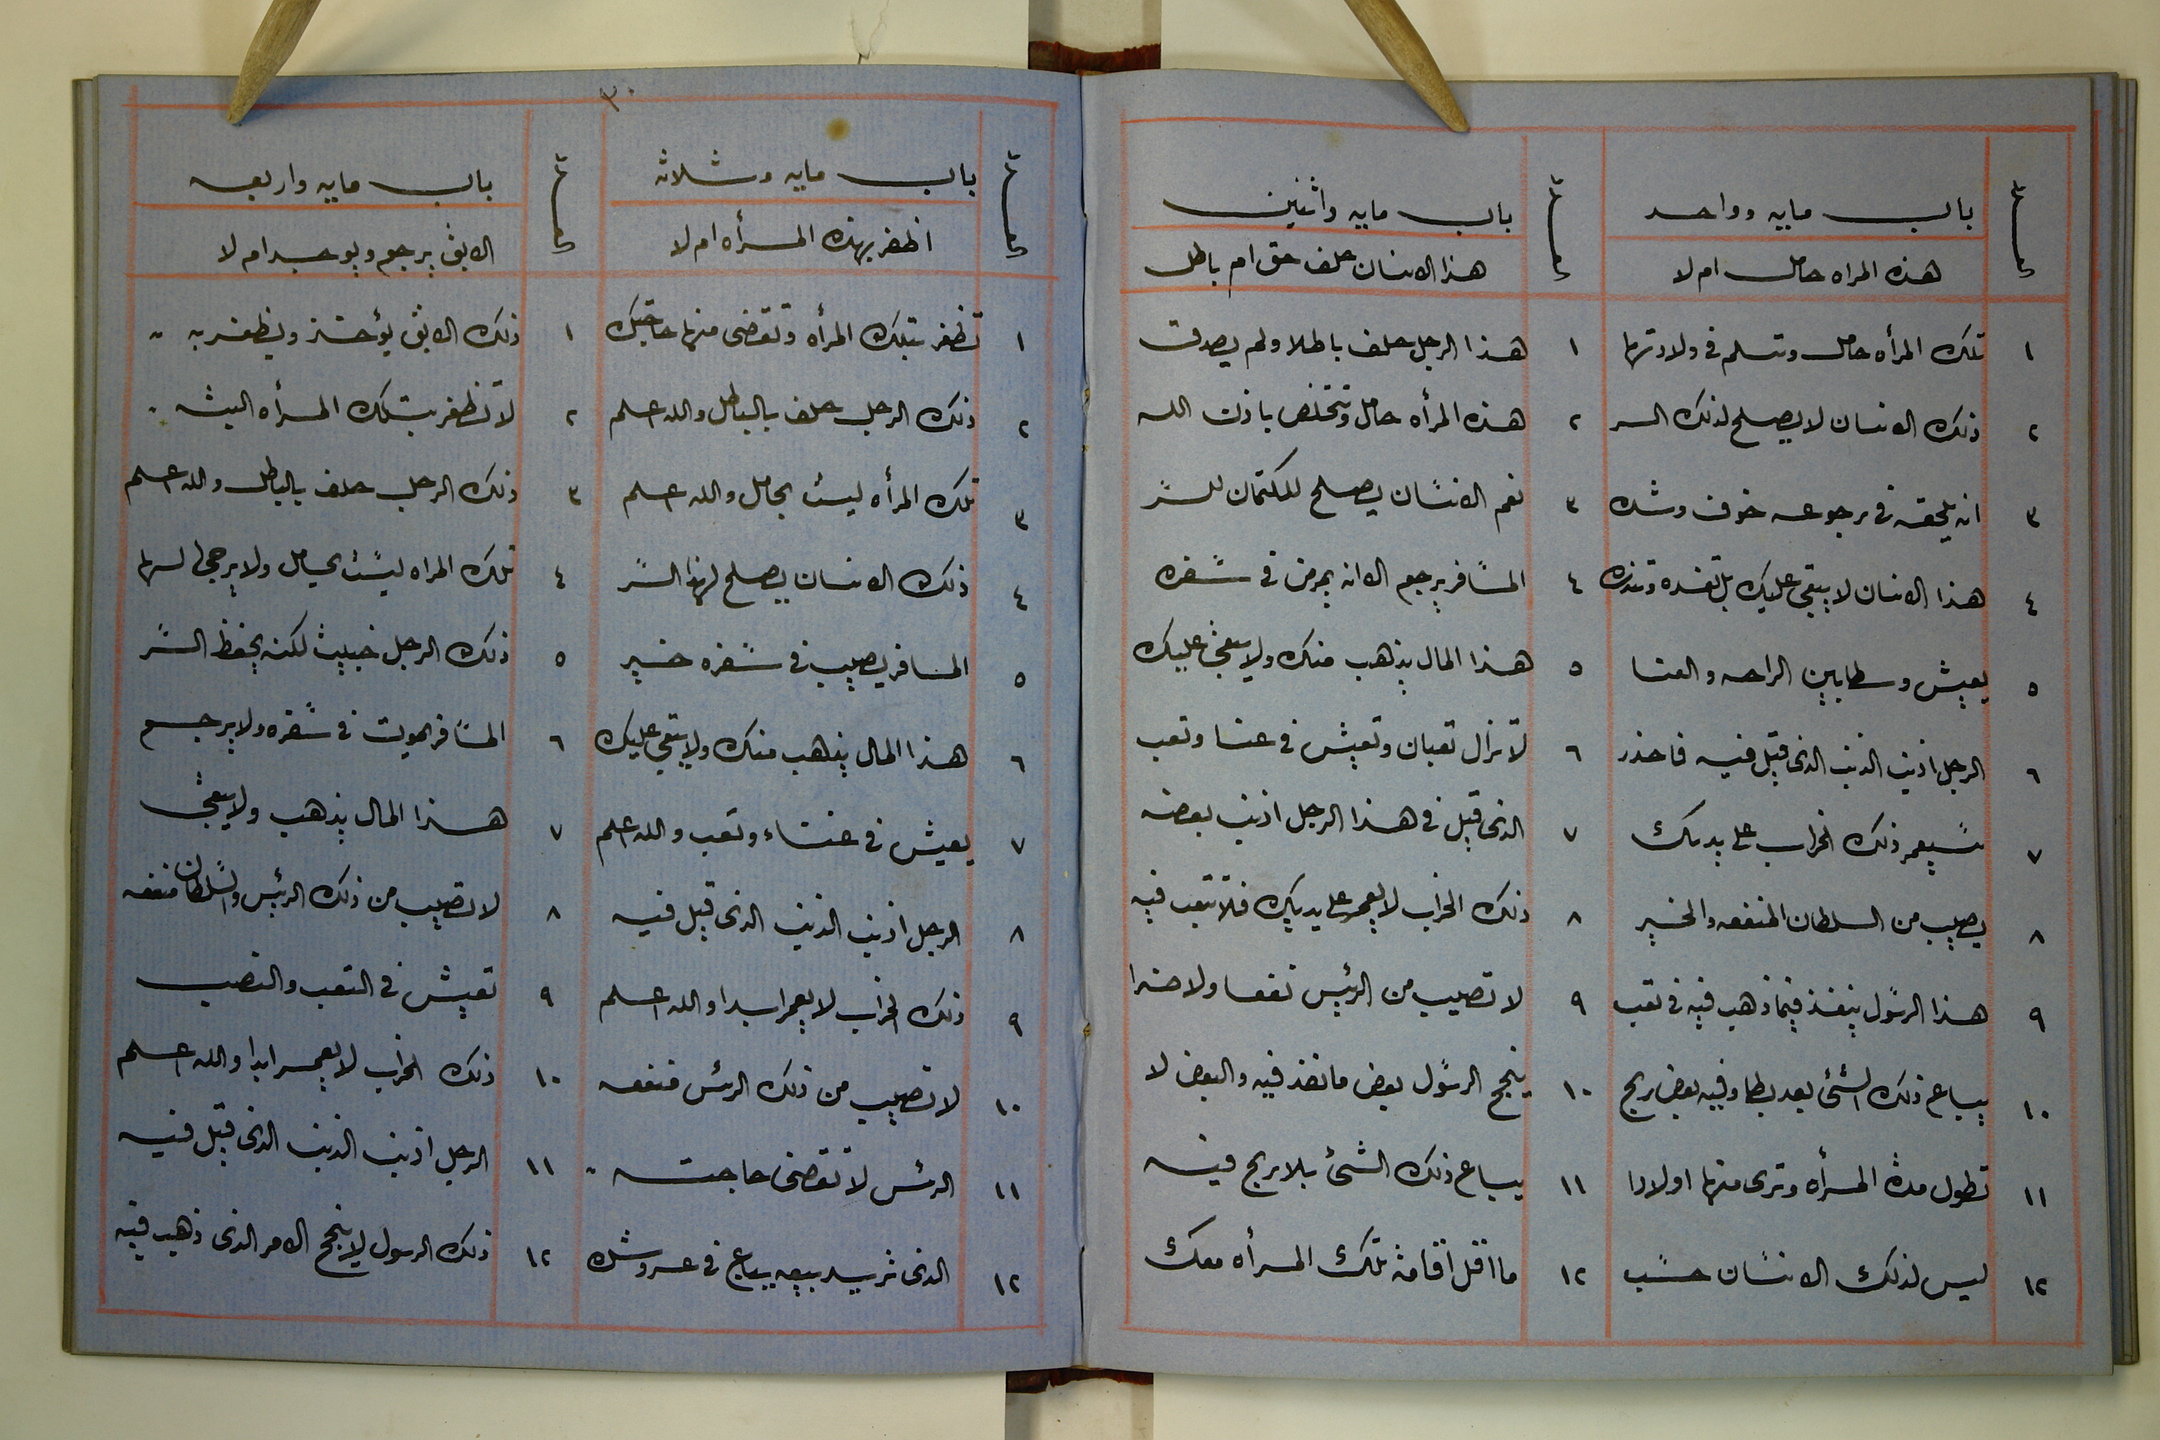 باب مايه وواحد
هذه المراه حامل ام لا
١ تلك المرأه حامل وتسلم في ولادتها
٢ ذلك الانسان لا يصلح لذلك السر
٣ انه يلحقه في رجوعه خوف وشده
٤ هذا الانسان لا يبقى عليك بل تفسده وتنذره
٥ يعيش وسطا بين الراحه والعنا
٦ الرجل اذنب الذنب الذى قيل فيه فاحذر
٧ سيعمر ذلك الخراب على يديك
٨ يصيب من السلطان المنفعه والخير
٩ هذا الرسول ينفذ فيما ذهب فيه في تعب
١٠ يباع ذلك الشئ بعد بطا وفيه بعض ربح
١١ تطول مدة المرأه وترى منها اولادا
١٢ ليس لذلك الانسان حسب
باب مايه واثنين
هذا الانسان حلف حق ام باطل
١ هذا الرجل حلف باطلا ولم يصدق
٢ هذه المرأه حامل وتتخلص باذن الله
٣ نعم الانسان يصلح للكتمان للسر
٤ المسافر يرجع الا انه يمرض في سفره
٥ هذا المال يذهب منك ولا يبقى عليك
٦ لا تزال تعبان وتعيش في عنا وتعب
٧ الذى قيل في هذا الرجل اذنب بعضه
٨ ذلك الخراب لا يعمر على يديك فلا تتعب فيه
٩ لا تصيب من الرئيس نفعا ولا ضرا
١٠ ينجح الرسول بعض ما نفذ فيه والبعض لا
١١ يباع ذلك الشئ بلا ربح فيه
١٢ ما اقل اقامة تلك المرأه معك
٣٠
باب مايه وثلاثه
اظفر بهذه المرأه ام لا
١ تظفر بتلك المرأه وتقضى منها حاجتك
٢ ذلك الرجل حلف بالباطل والله اعلم
٣ تلك المرأه ليست بحامل والله اعلم
٤ ذلك الانسان يصلح لهذا السر
٥ المسافر يصيب في سفره خير
٦ هذا المال يذهب منك ولا يبقى عليك
٧ يعيش في عناء وتعب والله اعلم
٨ الرجل اذنب الذنب الذى قيل فيه
٩ ذلك الخراب لا يعمر ابدا والله اعلم
١٠ لا تصيب من ذلك الرئس منفعه
١١ الرئس لا تقضى حاجته
١٢ الذى تريد بيعه يباع في عسر وشده
باب مايه واربعه
الابق يرجع ويوجد ام لا
١ ذلك الابق يؤخذ ويظفر به
٢ لا تظفر بتلك المرأه البته
٣ ذلك الرجل حلف بالباطل والله اعلم
٤ تلك المراه ليست بحامل ولا يرجى لها
٥ ذلك الرجل خبيث لكنه يحفظ السر
٦ المسافر يموت في سفره ولا يرجع
٧ هذا المال يذهب ولا يبقى
٨ لا تصيب من ذلك الرئيس والسلطان منفعه
٩ تعيش في التعب والنصب
١٠ ذلك الخراب لا يعمر ابدا والله اعلم
١١ الرجل اذنب الذنب الذى قيل فيه
١٢ ذلك الرسول لا ينجح الامر الذى ذهب فيه